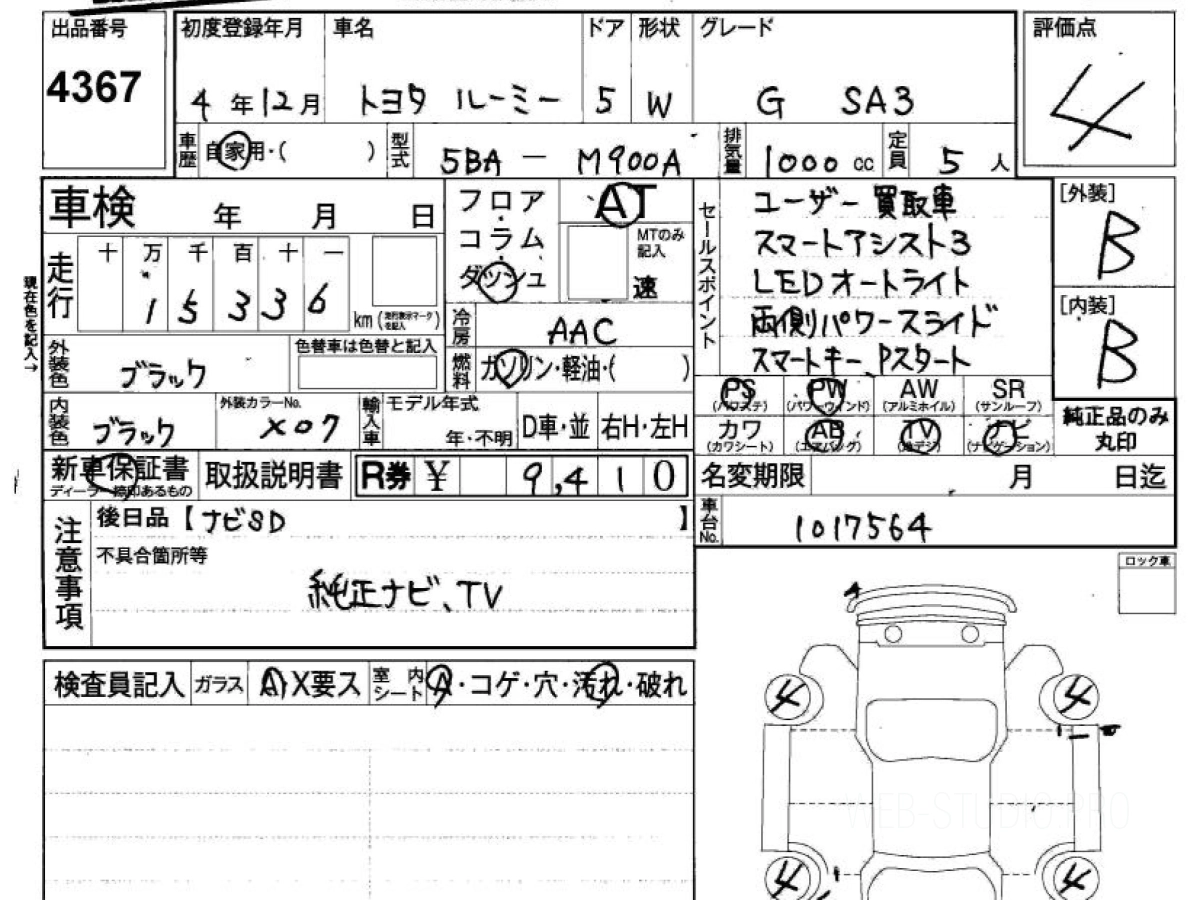 出品番号 初度登録年月 車名 ドア 形状 グレード 評価点
4367 4年12月 トヨタ ルーミー 5 W G SA3 4
車歴 自家用・( ) 型式 5BA - M900A 排気量 1000 cc 定員 5人
車検 年 月 日
フロア・コラム・ダッシュ
AT
MTのみ記入
速
セールスポイント
ユーザー買取車
スマートアシスト3
LEDオートライト
両側パワースライド
スマートキー、Pスタート
[外装]
B
[内装]
B
現在色を記入→
走行 十 万 千 百 十 一
1 5 3 3 6
km (走行表示マークを記入)
冷房 AAC
燃料 ガソリン・軽油・( )
外装色 ブラック
色替車は色替と記入
内装色 ブラック
外装カラーNo. X07
輸入車 モデル年式 年・不明 D車・並 右H・左H
PS (パワステ) PW (パワーウインド) AW (アルミホイル) SR (サンルーフ)
カワ (カワシート) AB (エアバッグ) TV (地デジ) ナビ (ナビゲーション)
純正品のみ
丸印
新車保証書 ディーラー捺印あるもの 取扱説明書 R券 ¥ 9,410
名変期限 月 日迄
車台No. 1017564
注意事項
後日品【ナビSD 】
不具合箇所等
純正ナビ、TV
ロック車
検査員記入 ガラス A X要ス 室内シート A・コゲ・穴・汚れ・破れ
4 4
4 4
WEB-STUDIO.PRO